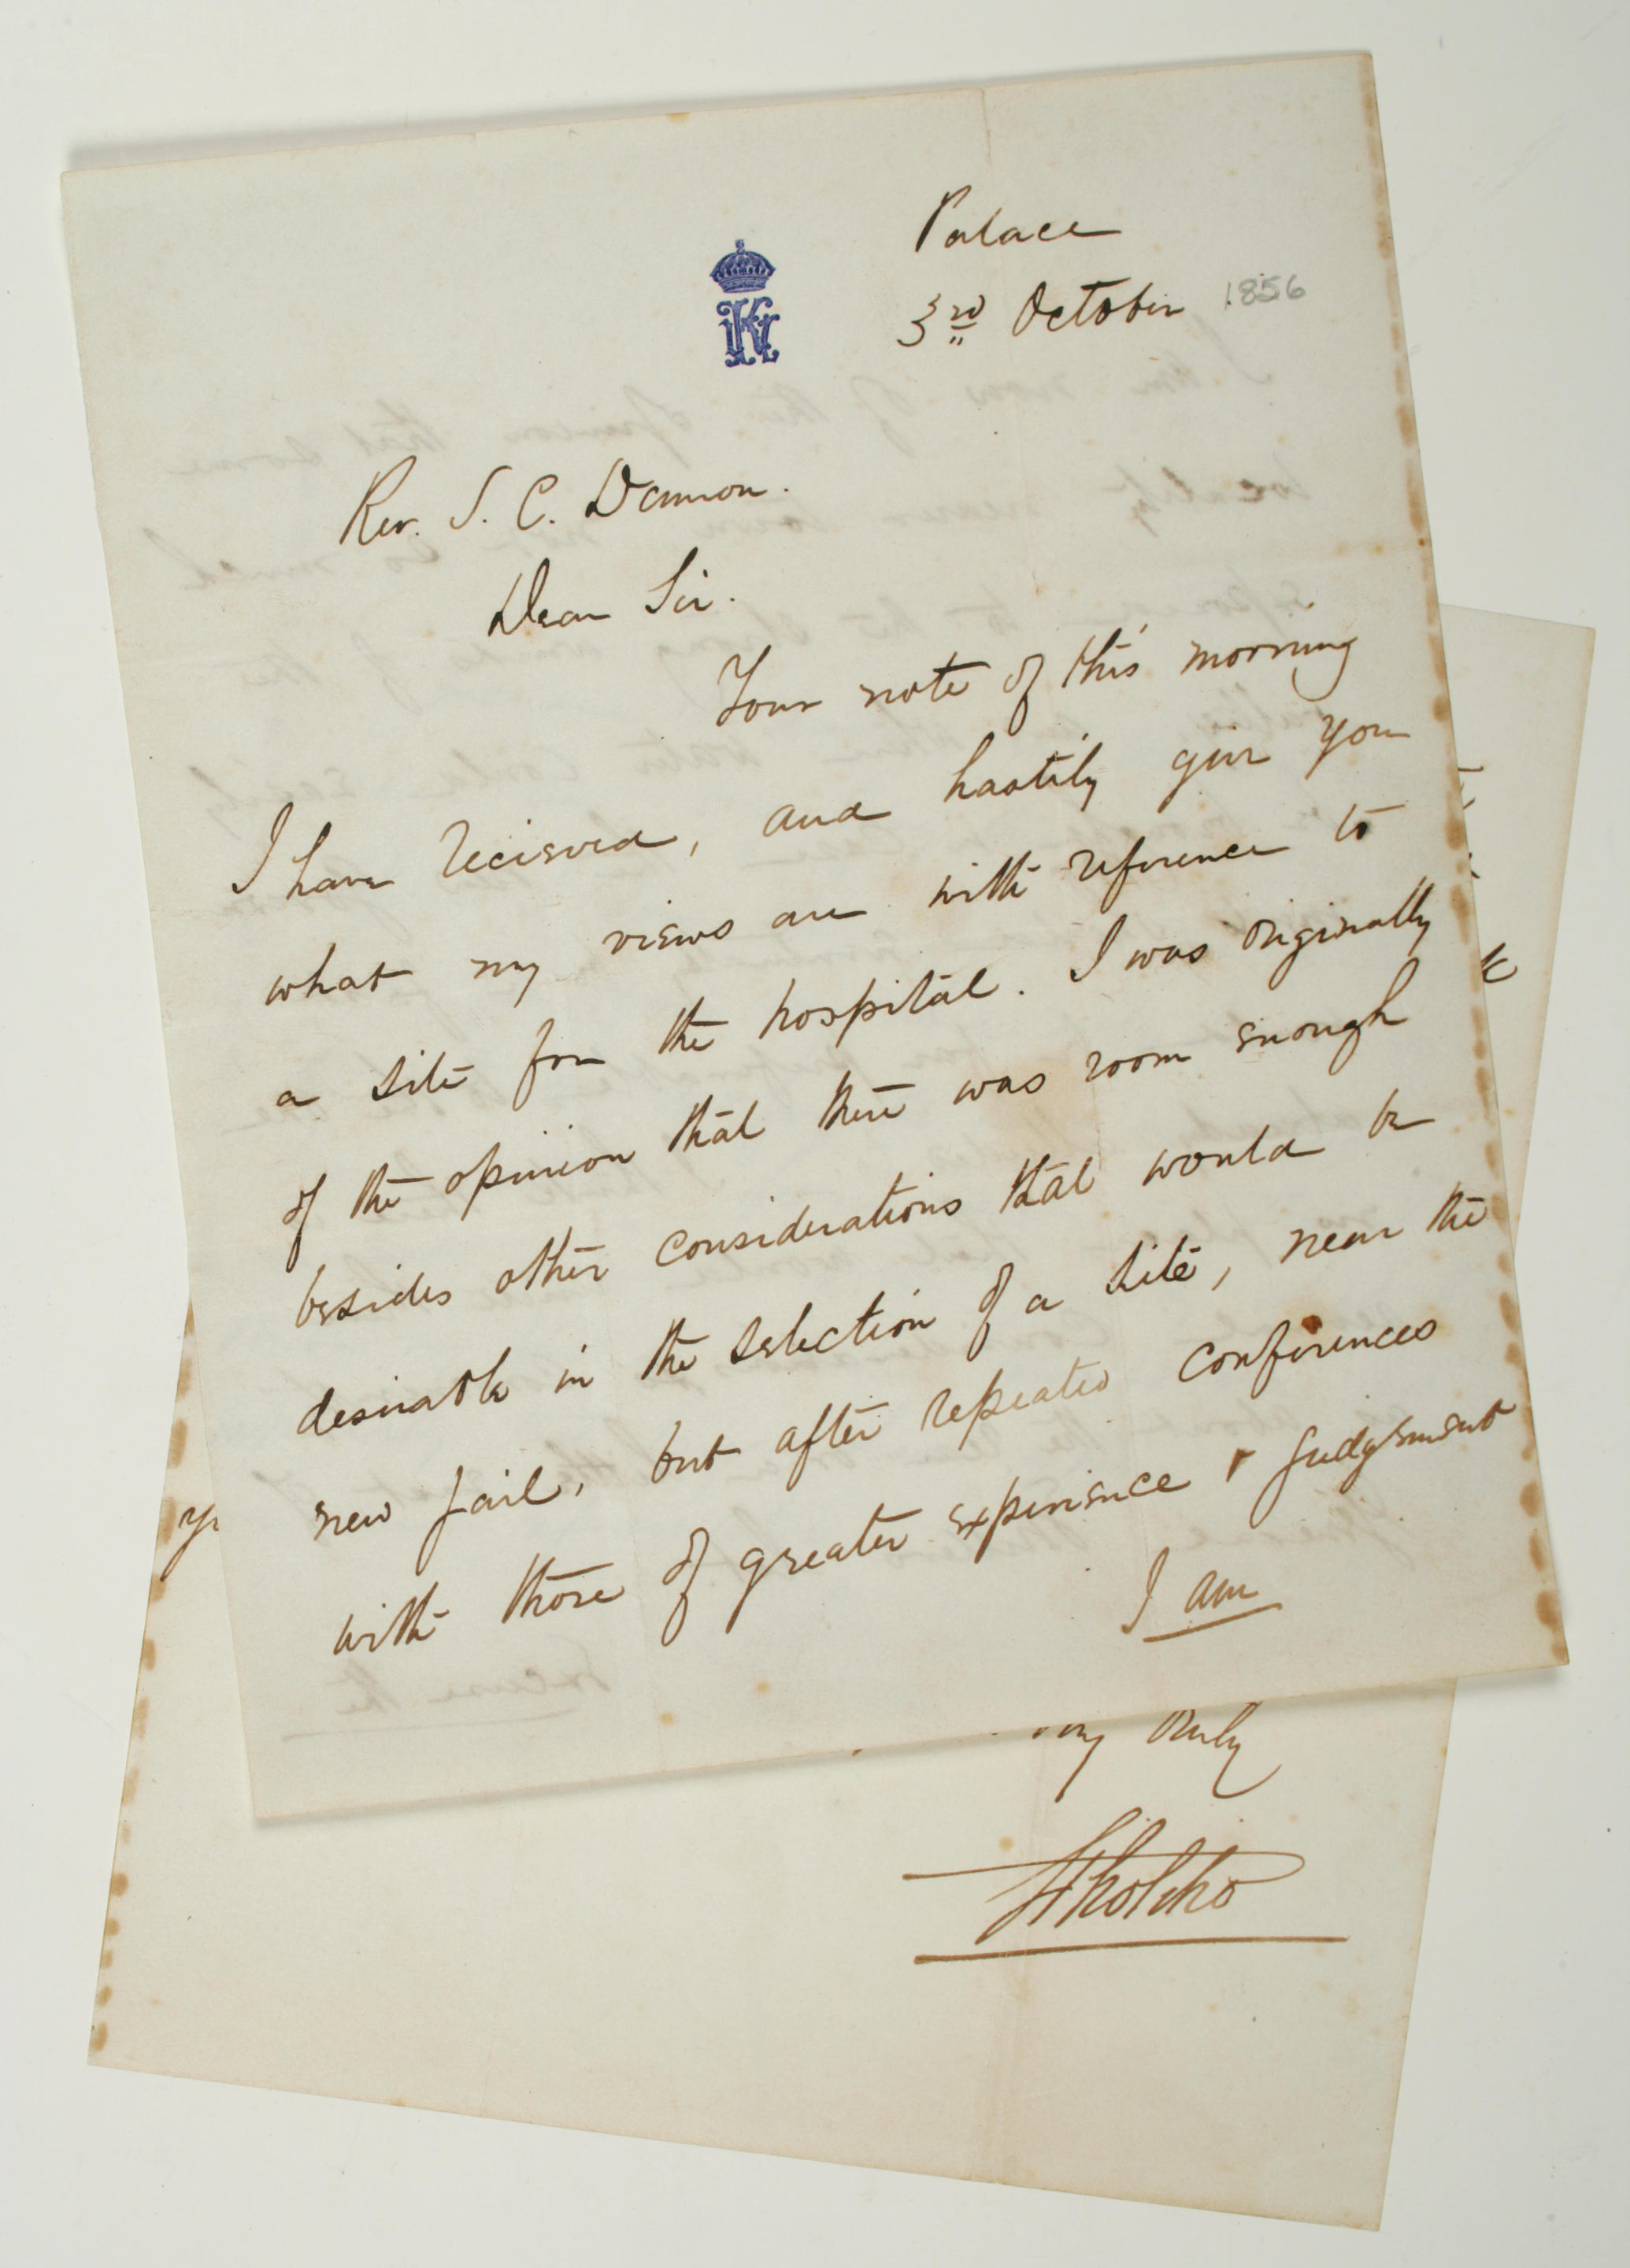 Palace
3rd October 1856
Rev. S. C. Damon.
Dear Sir.
Your note of this morning
I have recieved, and hastily give you
what my views are with reference to
a site for the hospital. I was originally
of the opinion that there was room enough
besides other considerations that would be
desirable in the selection of a site, near the
new jail, but after repeated conferences
with those of greater experience & judgement
I am
truly